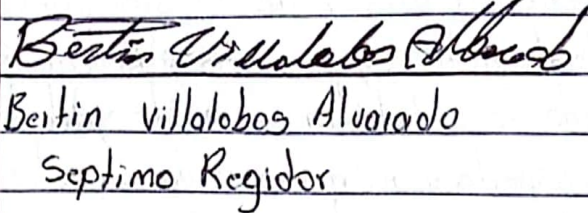 Bertin Villalobos Alvarado
Bertin villalobos Alvarado
Septimo Regidor